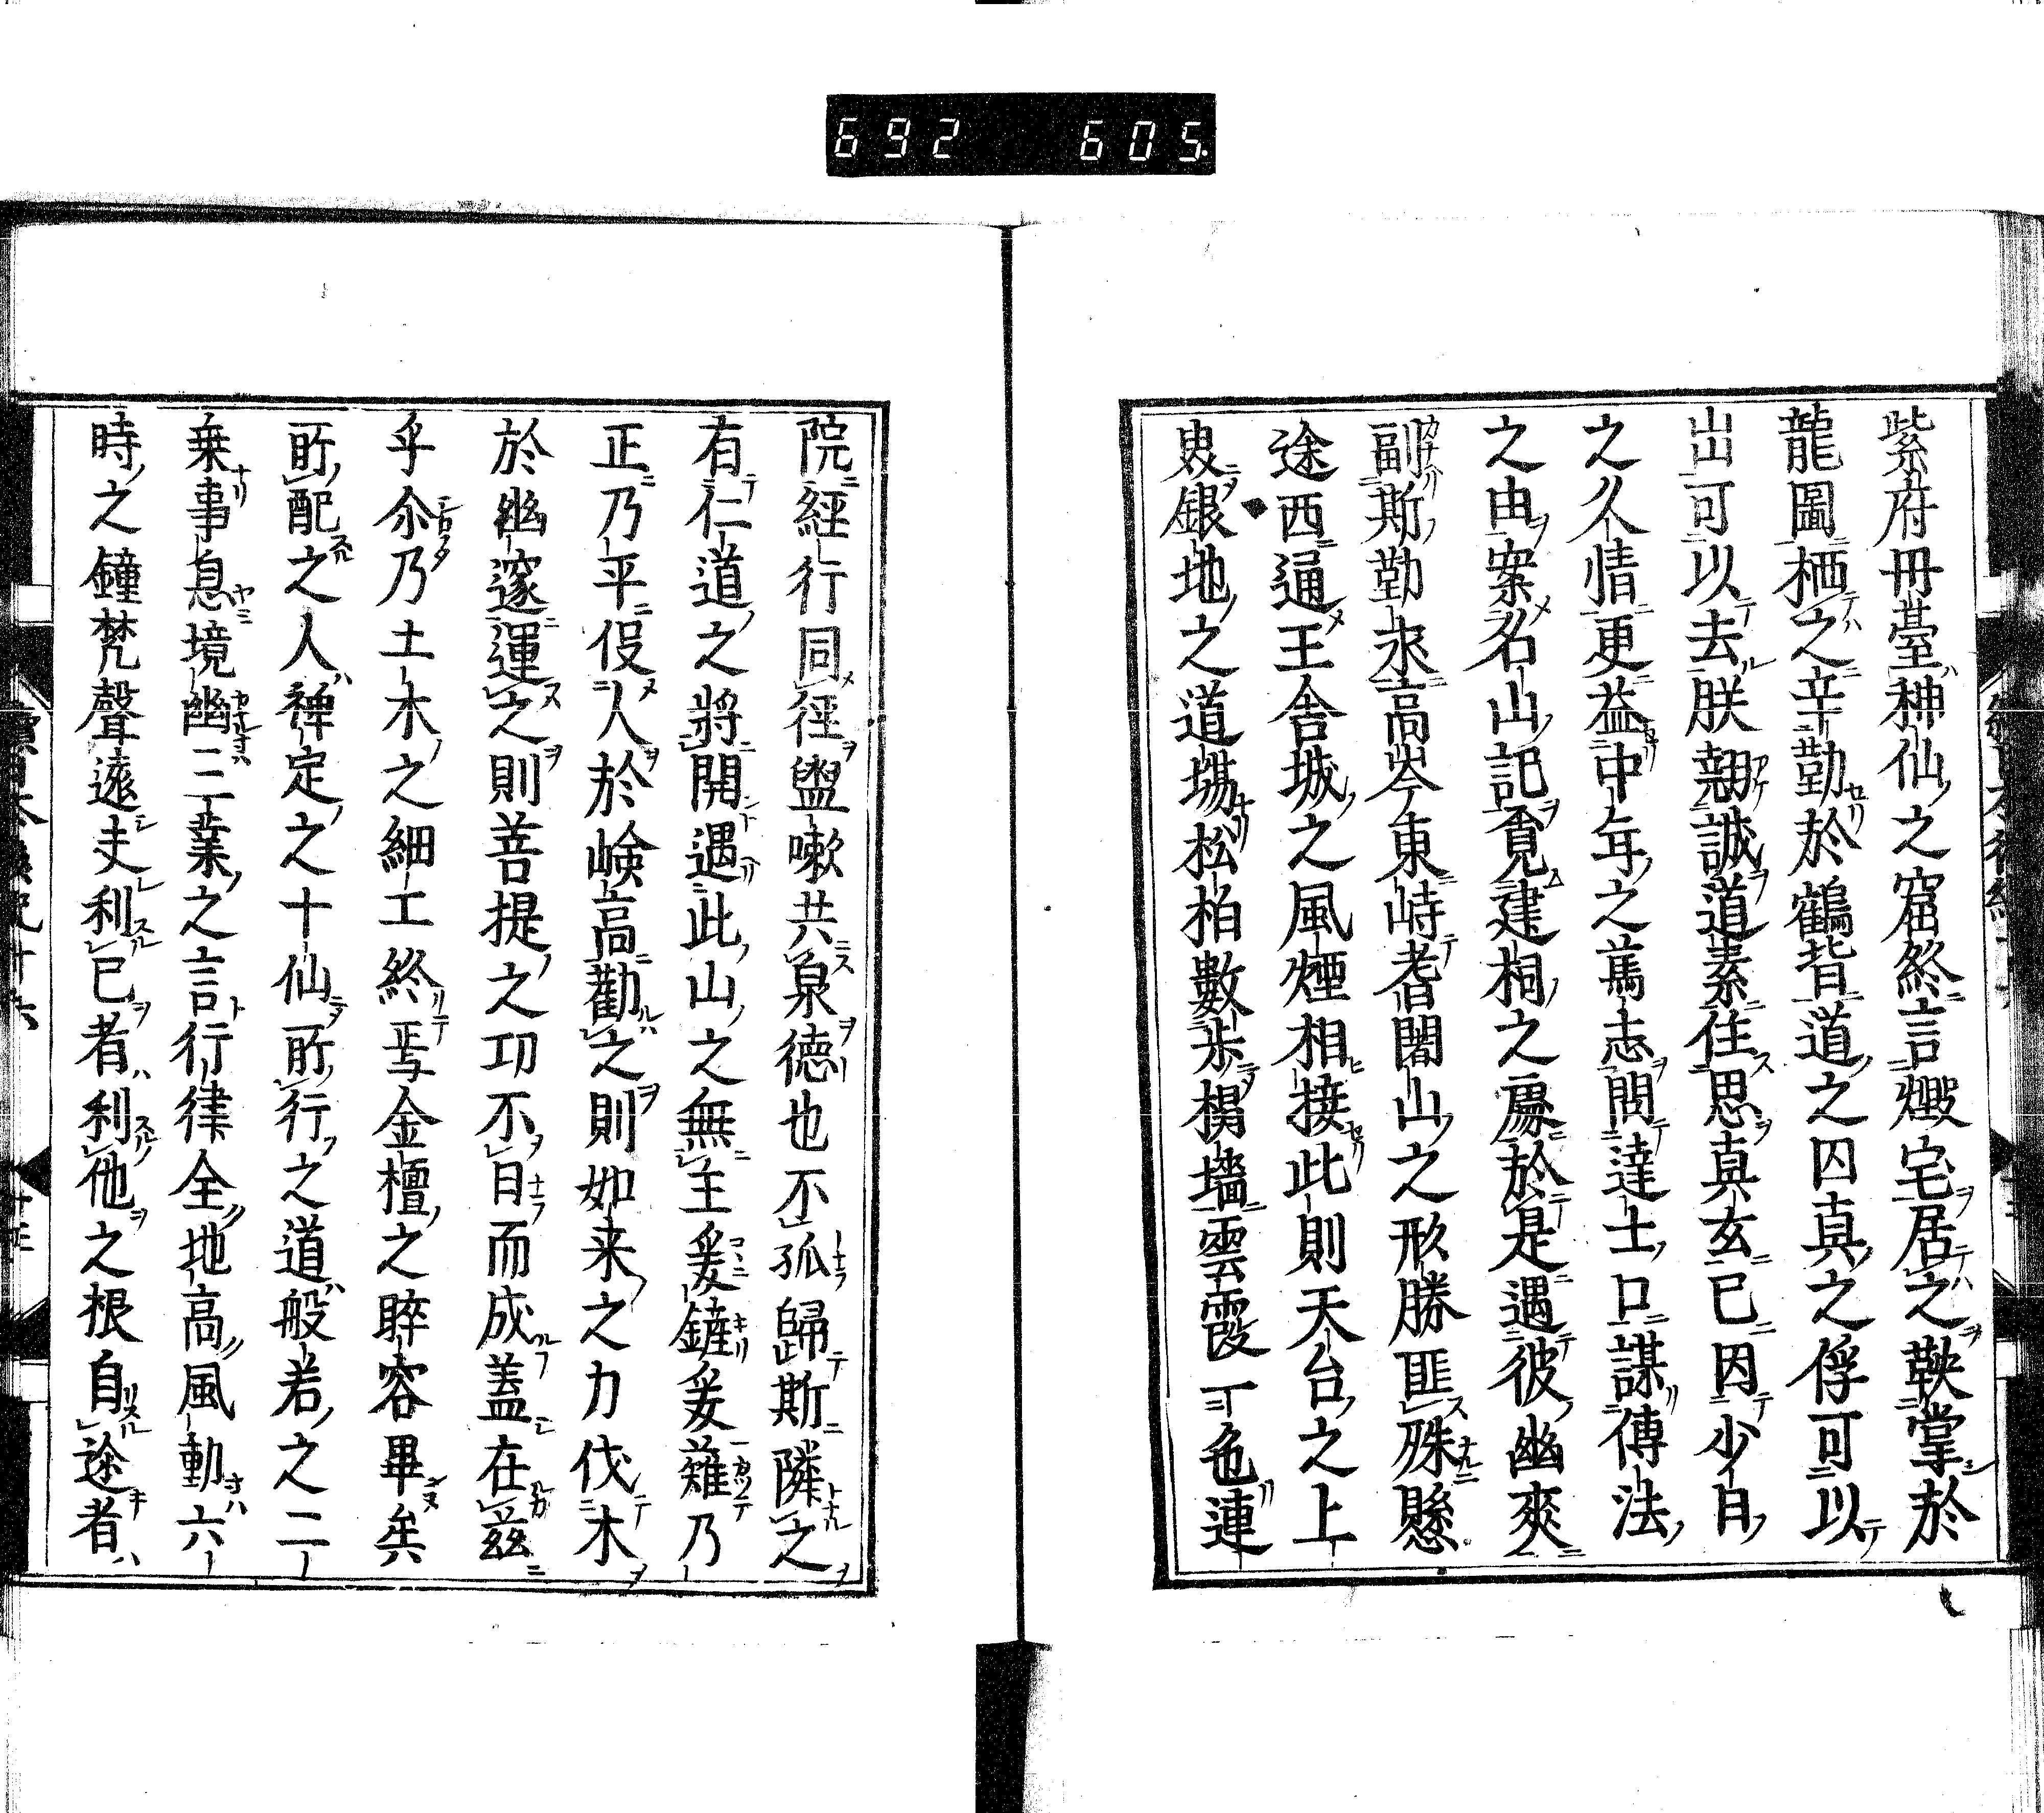 692 605
紫府丹臺神仙之窟終言燬宅居之鞅掌於
龍圖栖之辛勤於鶴背道之因真之俘可以
出可以去朕翹誠道素住思真玄已因少日
之久情更益中年之篤志問達士口謀傳法
之由案名山記覓建祠之處於是遇彼幽爽
副斯勤求高岑東峙耆闍山之形勝匪殊懸
途西通王舎城之風煙相接此則天台之上
銀地之道場松柏數歩搨墻雲霞一色連
院經行同徑盥嗽共泉徳也不孤歸斯隣之
有仁道之將開遇此山之無主爰鏟爰薙乃
正乃平役人於嶮高勸之則如来之力伐木
於幽邃運之則菩提之功不日而成蓋在茲
乎尒乃土木之細工終焉金檀之睟容畢矣
所配之人禅定之十仙所行之道般若之二
乗事息境幽三業之言行律全地高風動六
時之鐘梵聲遠夫利已者利他之根自途者